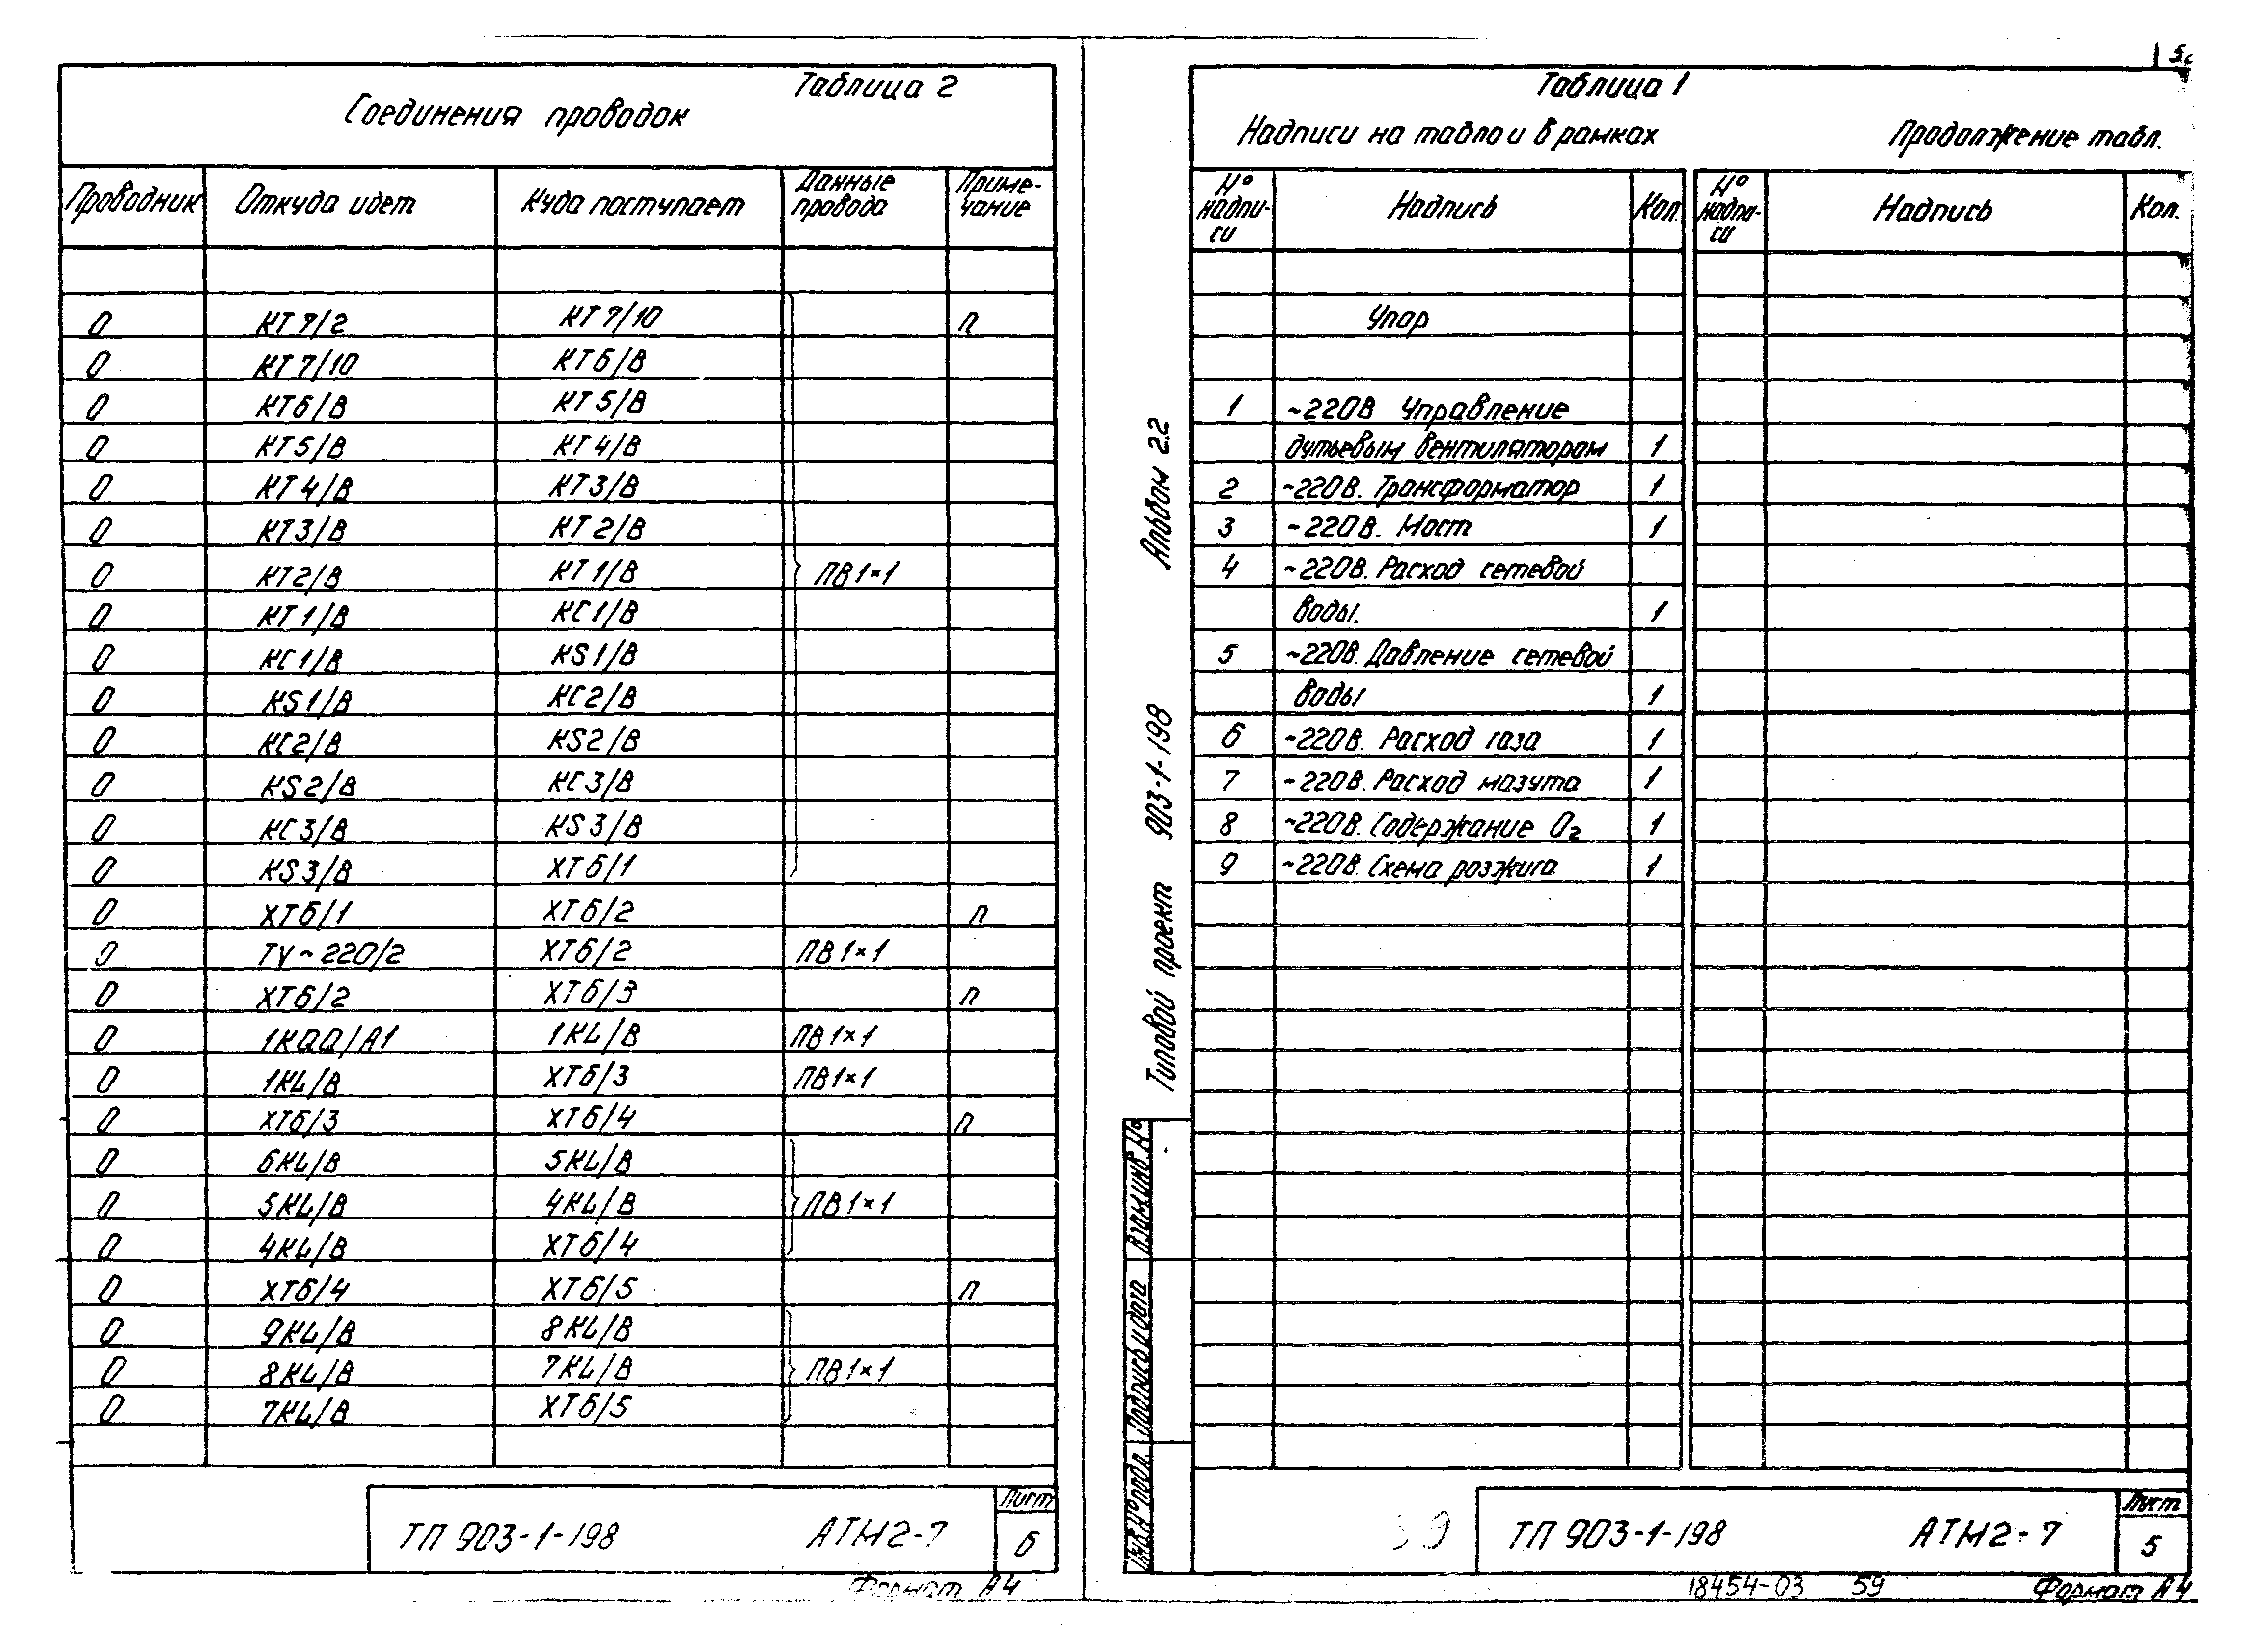 Таблица 2
Соединения проводок
Проводник Откуда идет Куда поступает Данные провода Приме-чание
0 КТ7/2 КТ7/10 п
0 КТ7/10 КТ6/В
0 КТ6/В КТ5/В
0 КТ5/В КТ4/В
0 КТ4/В КТ3/В
0 КТ3/В КТ2/В
0 КТ2/В КТ1/В ПВ1×1
0 КТ1/В КС1/В
0 КС1/В KS1/В
0 KS1/В КС2/В
0 КС2/В KS2/В
0 KS2/В КС3/В
0 КС3/В KS3/В
0 KS3/В ХТ6/1
0 ХТ6/1 ХТ6/2 п
0 TV~220/2 ХТ6/2 ПВ1×1
0 ХТ6/2 ХТ6/3 п
0 1KQQ/А1 1KL/В ПВ1×1
0 1KL/В ХТ6/3 ПВ1×1
0 ХТ6/3 ХТ6/4 п
0 6KL/В 5KL/В
0 5KL/В 4KL/В ПВ1×1
0 4KL/В ХТ6/4
0 ХТ6/4 ХТ6/5 п
0 9KL/В 8KL/В
0 8KL/В 7KL/В ПВ1×1
0 7KL/В ХТ6/5
ТП 903-1-198 АТМ2-7 Лист 6
Формат А4
Таблица 1
Надписи на табло и в рамках Продолжение табл.
N° надпи-си Надпись Кол. N° надпи-си Надпись Кол.
Упор
1 ~220В Управление
дутьевым вентилятором 1
2 ~220В. Трансформатор 1
3 ~220В. Мост 1
4 ~220В. Расход сетевой
воды. 1
5 ~220В. Давление сетевой
воды 1
6 ~220В. Расход газа 1
7 ~220В. Расход мазута 1
8 ~220В. Содержание O₂ 1
9 ~220В. Схема розжига 1
Типовой проект 903-1-198 Альбом 2.2
Инв.N°подл. Подпись и дата Взам.инв.N°
ТП 903-1-198 АТМ2-7 Лист 5
18454-03 59 Формат А4